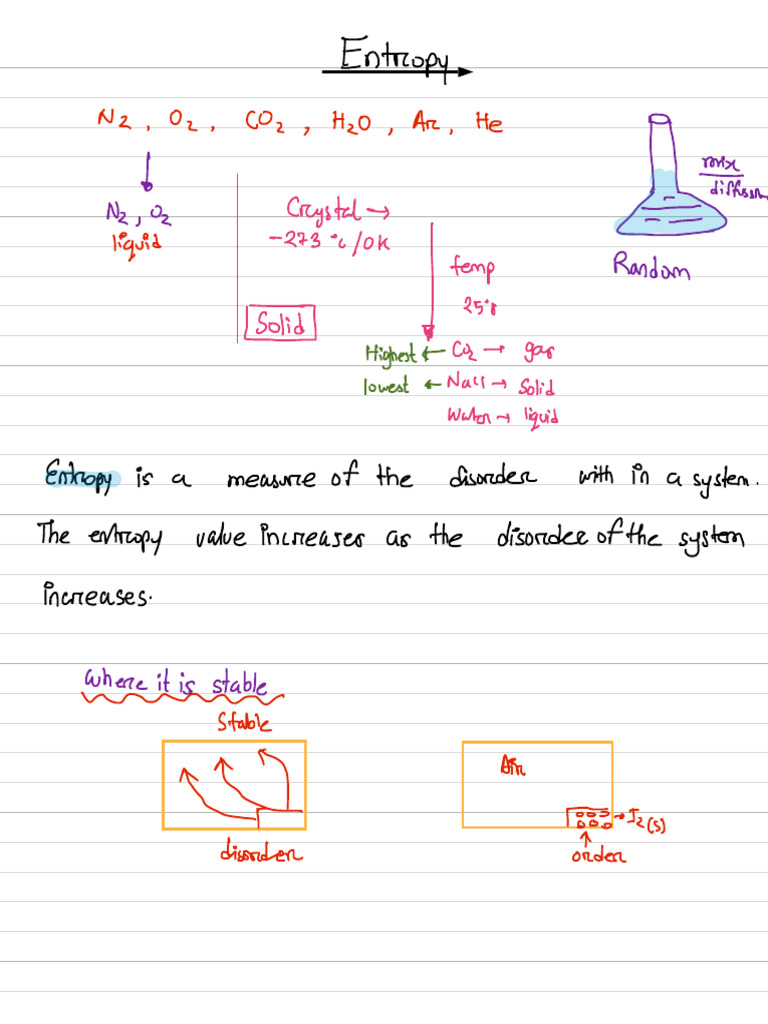 Entropy
N2, O2, CO2, H2O, Ar, He
mix
diffusion
N2, O2
liquid
Crystal →
-273 °c/0K
Random
temp
25°
Solid
Highest ← CO2 → gas
lowest ← Nacl → Solid
Water → liquid
Entropy is a measure of the disorder with in a system.
The entropy value increases as the disorder of the system
increases.
where it is stable
Stable
Air
→ I2(s)
disorder
order